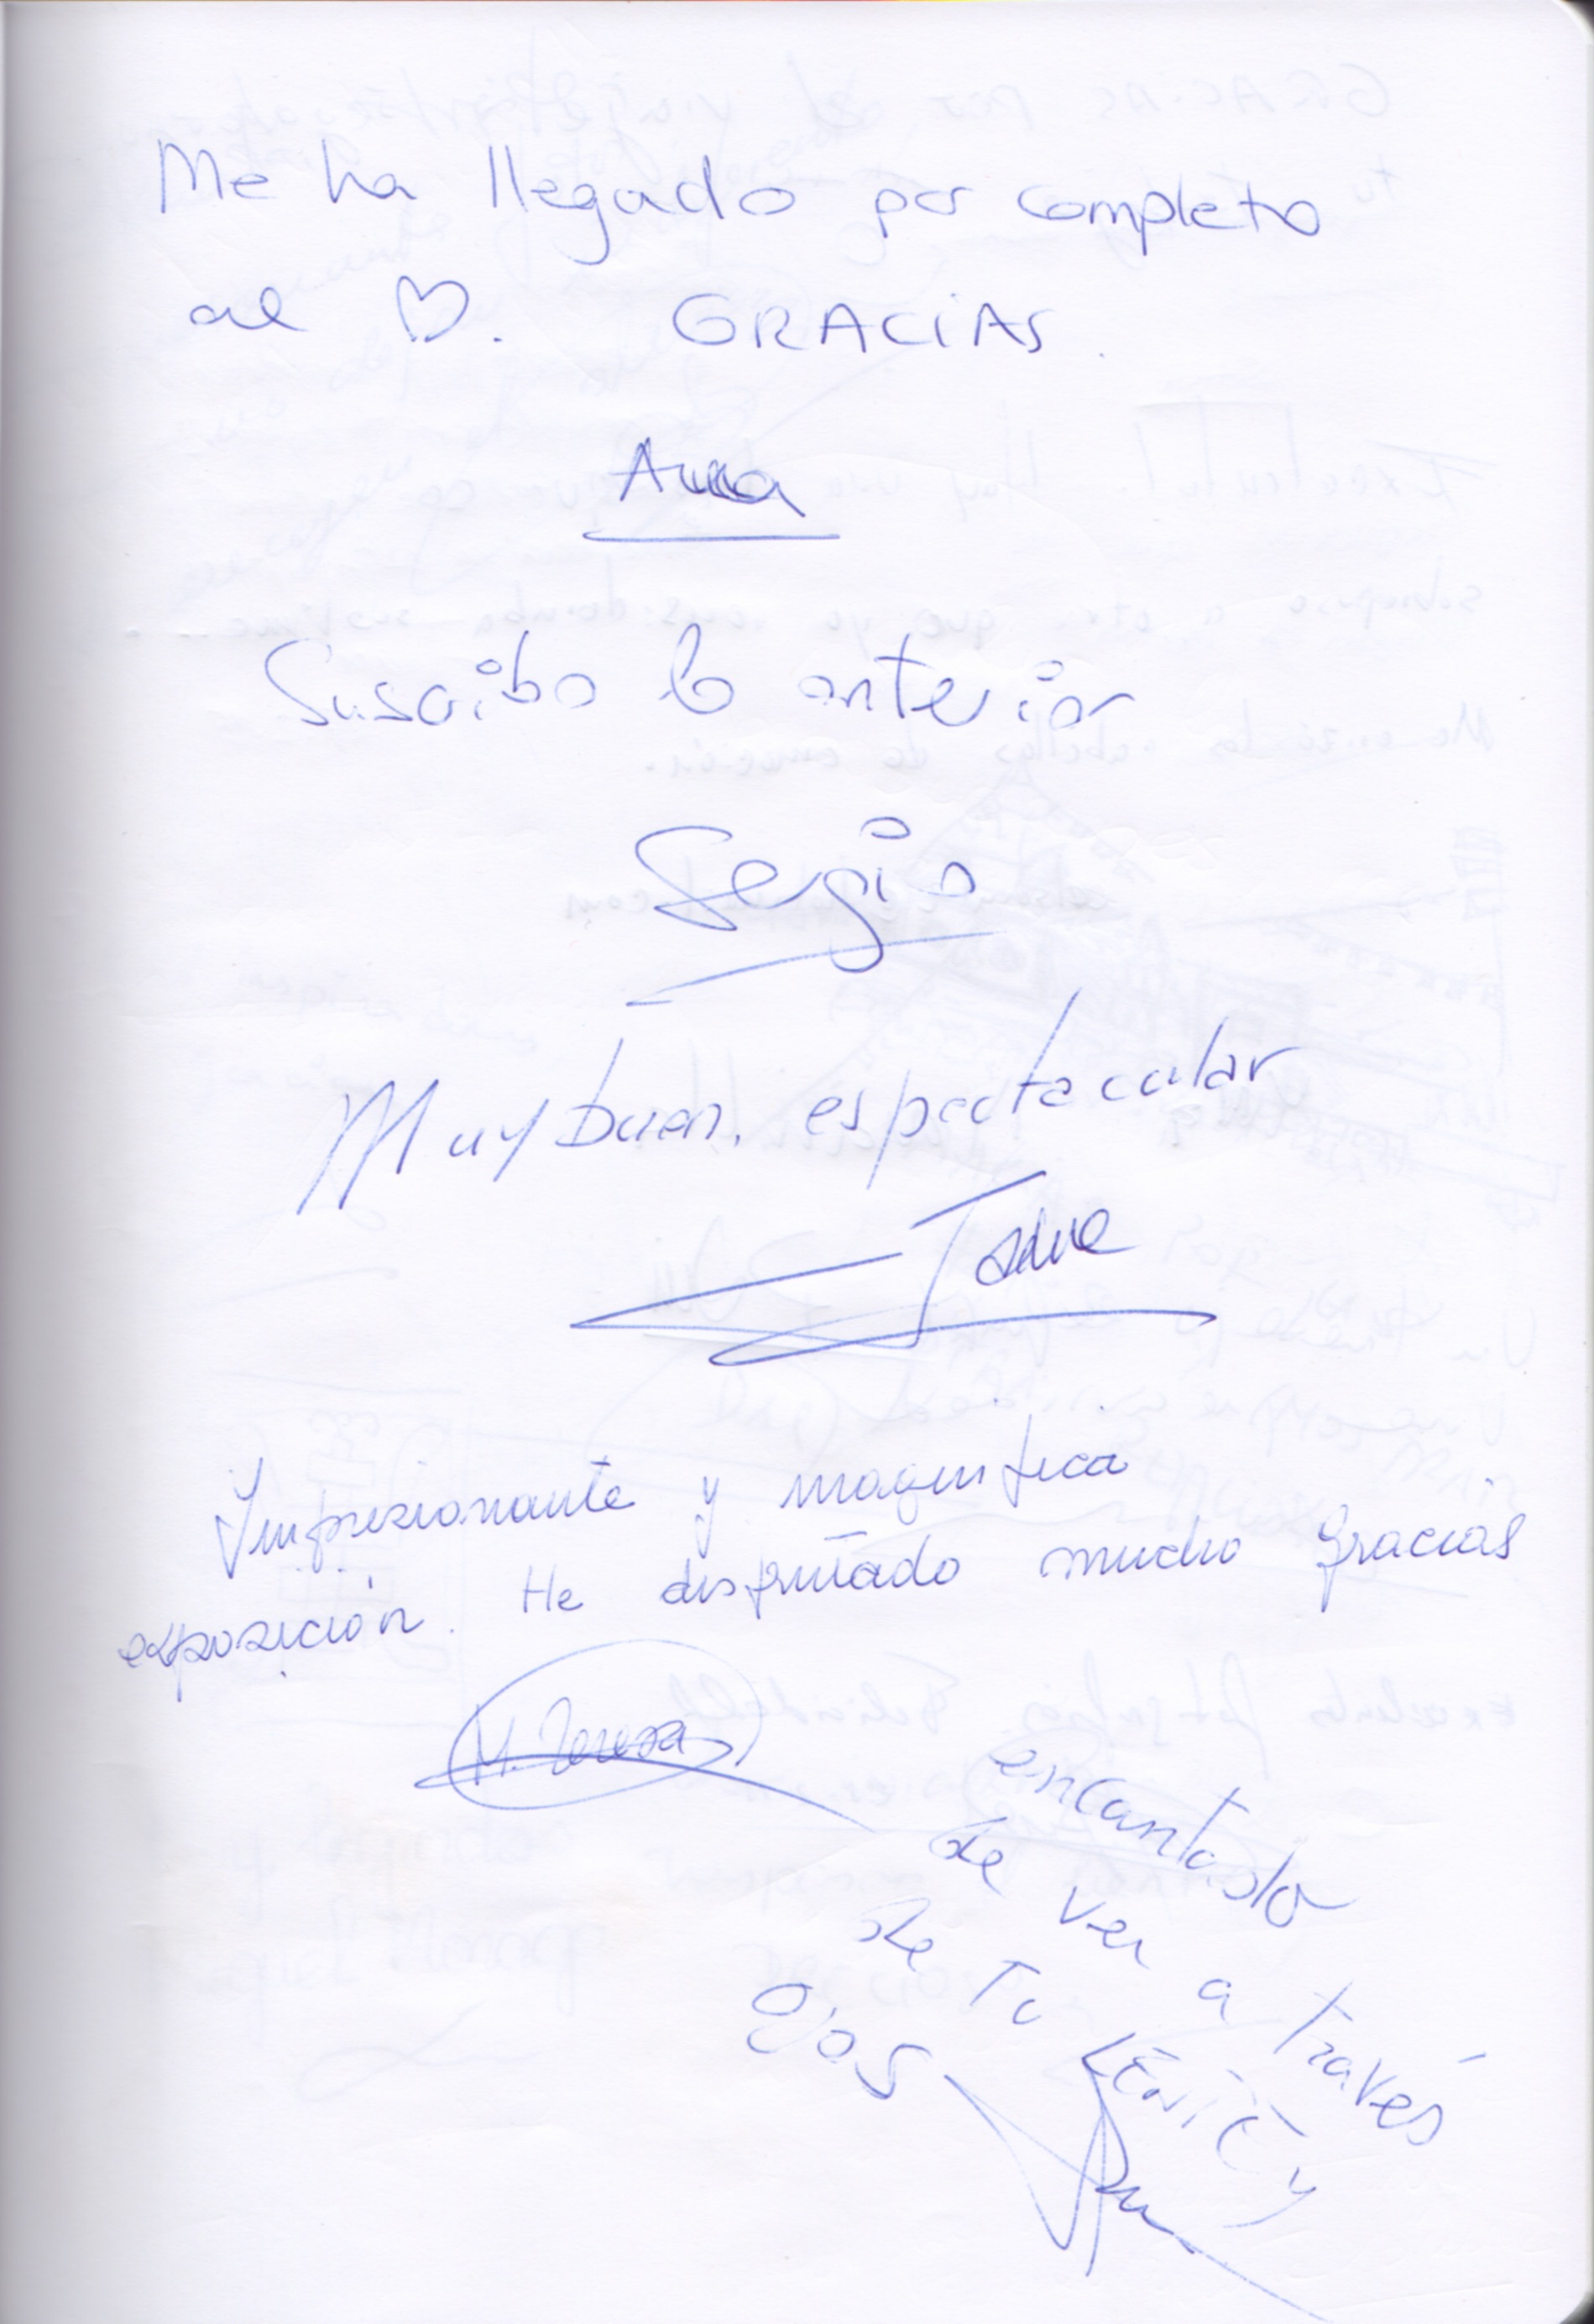 Me ha llegado por completo
al ♡. GRACIAS.
Anna
Suscribo lo anterior
Sergio
Muy buen, espectacular
Impresionante y magnifica
exposición. He disfrutado mucho gracias
M. Teresa
encantado
de ver a través
de tu LENTE y
ojos